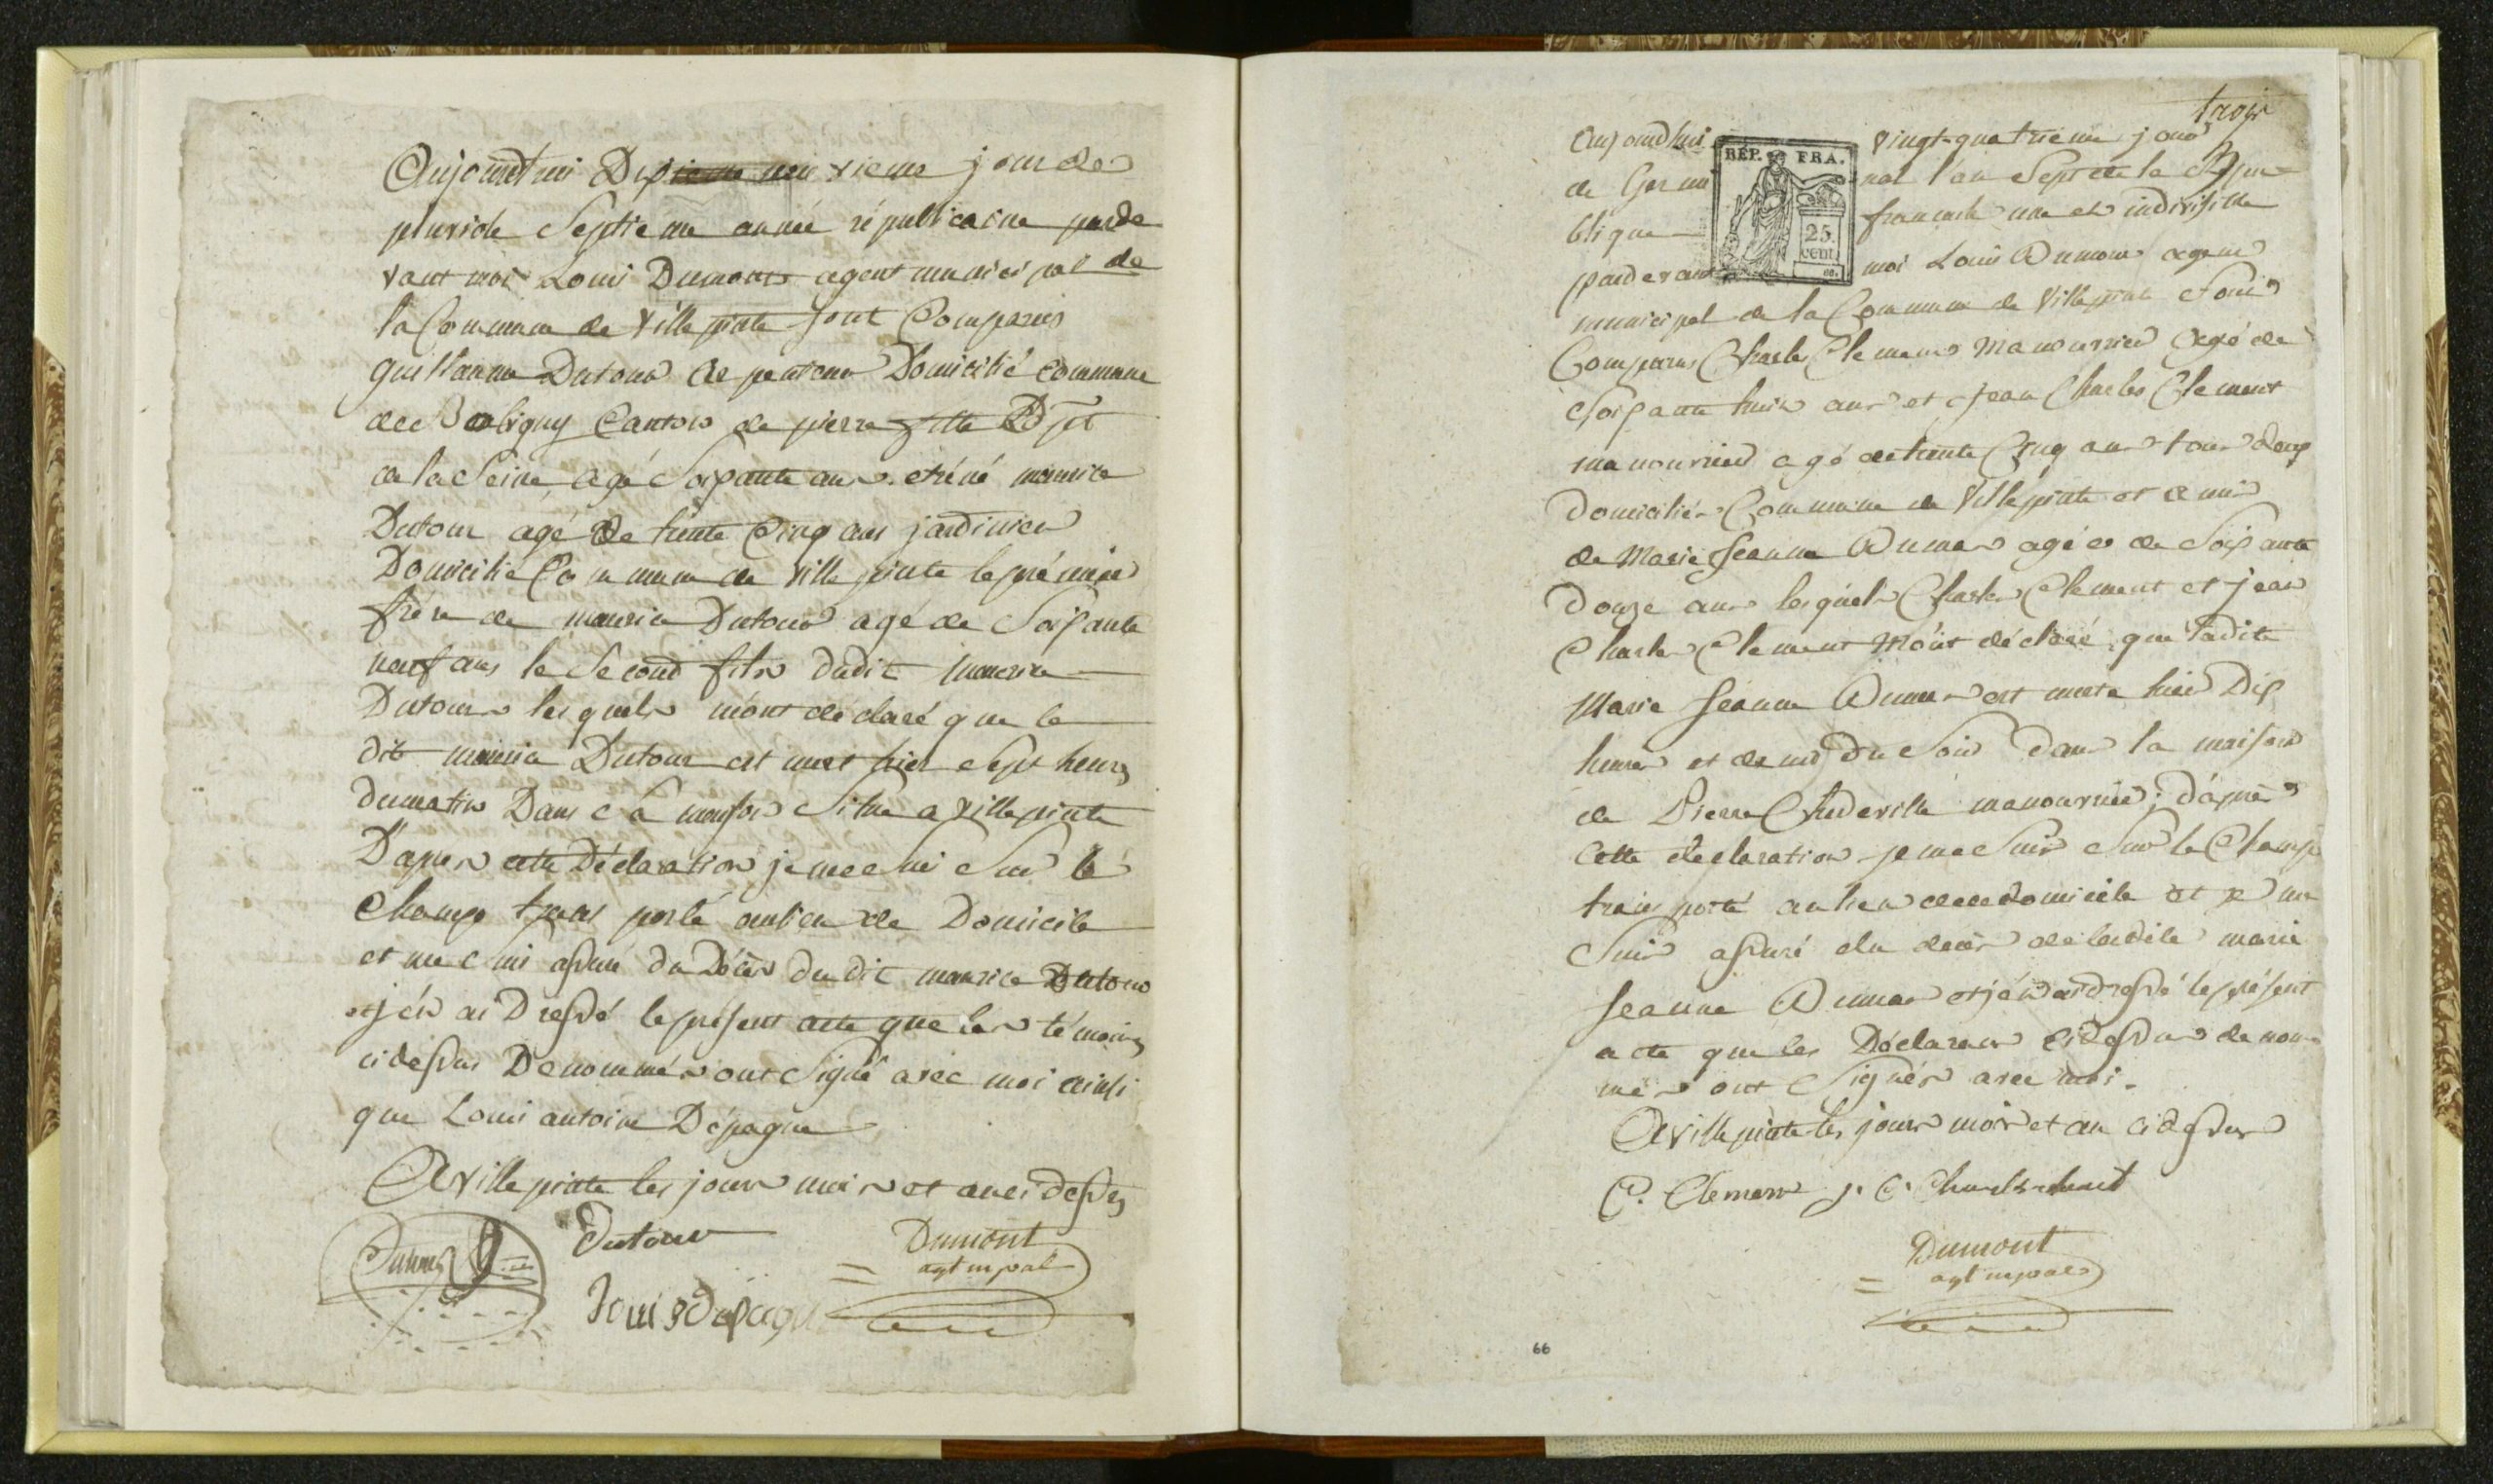 Aujourdhui Dixieme jour de
pluviose Septieme année républicaine parde
vant moi Louis Dumont agent municipal de
la Commune de Villepinte sont Comparus
Guillaume Dutour Domicilié commune
de Bobigny Canton de pierrefitte Dept
de la Seine, agé Soixante ans et réné maurice
Dutour agé de trente Cinq ans jardinier
Domicilié Commune de Villepinte le prémier
frére de maurice Dutour agé de Soixante
neuf ans le Second fils dudit maurice
Dutour lesquels m'ont déclaré que le
dit maurice Dutour est mort hier Sept heures
du matin Dans sa maison Situe a Villepinte
D'apres cette Déclaration je me sui Sur le
Champ transporté au lieu de Domicile
et me sui assuré du Décès dudit maurice Dutour
et j'en ai Dressé le présent acte que les témoins
cidessus Denommés ont Signé avec moi ainsi
que Louis antoine Dépagne
A Villepinte les jour mois et an cidessus
Dutour
Dumont
agt mpal
Louis Depagne
trois
Aujourdhui vingt-quatrieme jour
RÉP. FRA.
de Germinal l'an Sept de la Répu
blique francaise une et indivisible
25.
cent.
pardevant moi Louis Dumont agent
municipal de la Commune de Villepinte Sont
Comparus Charles Clement Manouvrier agé de
Soixante huit ans et Jean Charles Clement
manouvrier agé de trente Cinq ans tous deux
Domiciliés Commune de Villepinte et amis
de Marie Jeanne Dumas agée de Soixante
Douze ans lesquels Charles Clement et jean
Charles Clement M'ont déclaré que ladite
Marie Jeanne Dumas est morte hier Dix
heures et demie Du Soir Dans la maison
de Pierre manouvrier; D'aprés
Cette declaration je me Suis Sur le Champ
transporté au lieu de ce domicile et je me
Suis assuré du decès de ladite marie
Jeanne Dumas et j'en ai dressé le présent
acte que les Déclarans Cidessus denom
més ont Signés avec moi.
A Villepinte les jour mois et an cidessus
C. Clement j. C. Charle
Dumont
agt mpal
66